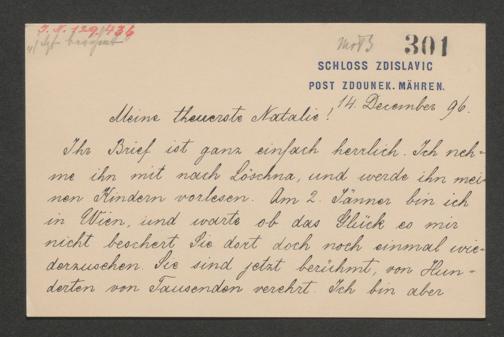 J. N. 129.436
301
SCHLOSS ZDISLAVIC
POST ZDOUNEK. MÄHREN.
14. December 96.
Meine theuerste Natalie!
Ihr Brief ist ganz einfach herrlich. Ich neh-
me ihn mit nach Löschna, und werde ihn mei-
nen Kindern vorlesen. Am 2. Jänner bin ich
in Wien, und warte ob das Glück es mir
nicht beschert Sie dort doch noch einmal wie-
derzusehen. Sie sind jetzt berühmt, von Hun-
derten von Tausenden verehrt. Ich bin aber